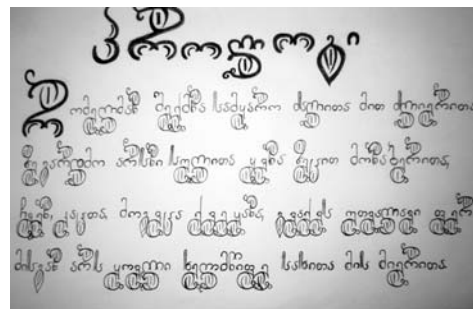 პროლოგი
რომელმან შექმნა სამყარო ძალითა მით ძლიერითა
ზეგარდმო არსნი სულითა ყვნა ზეცით მონაბერითა,
ჩვენ, კაცთა, მოგვცა ქვეყანა, გვაქვს უთვალავი ფერ
მისგან არს ყოვლი ხელმწიფე სახითა მის მიერითა.